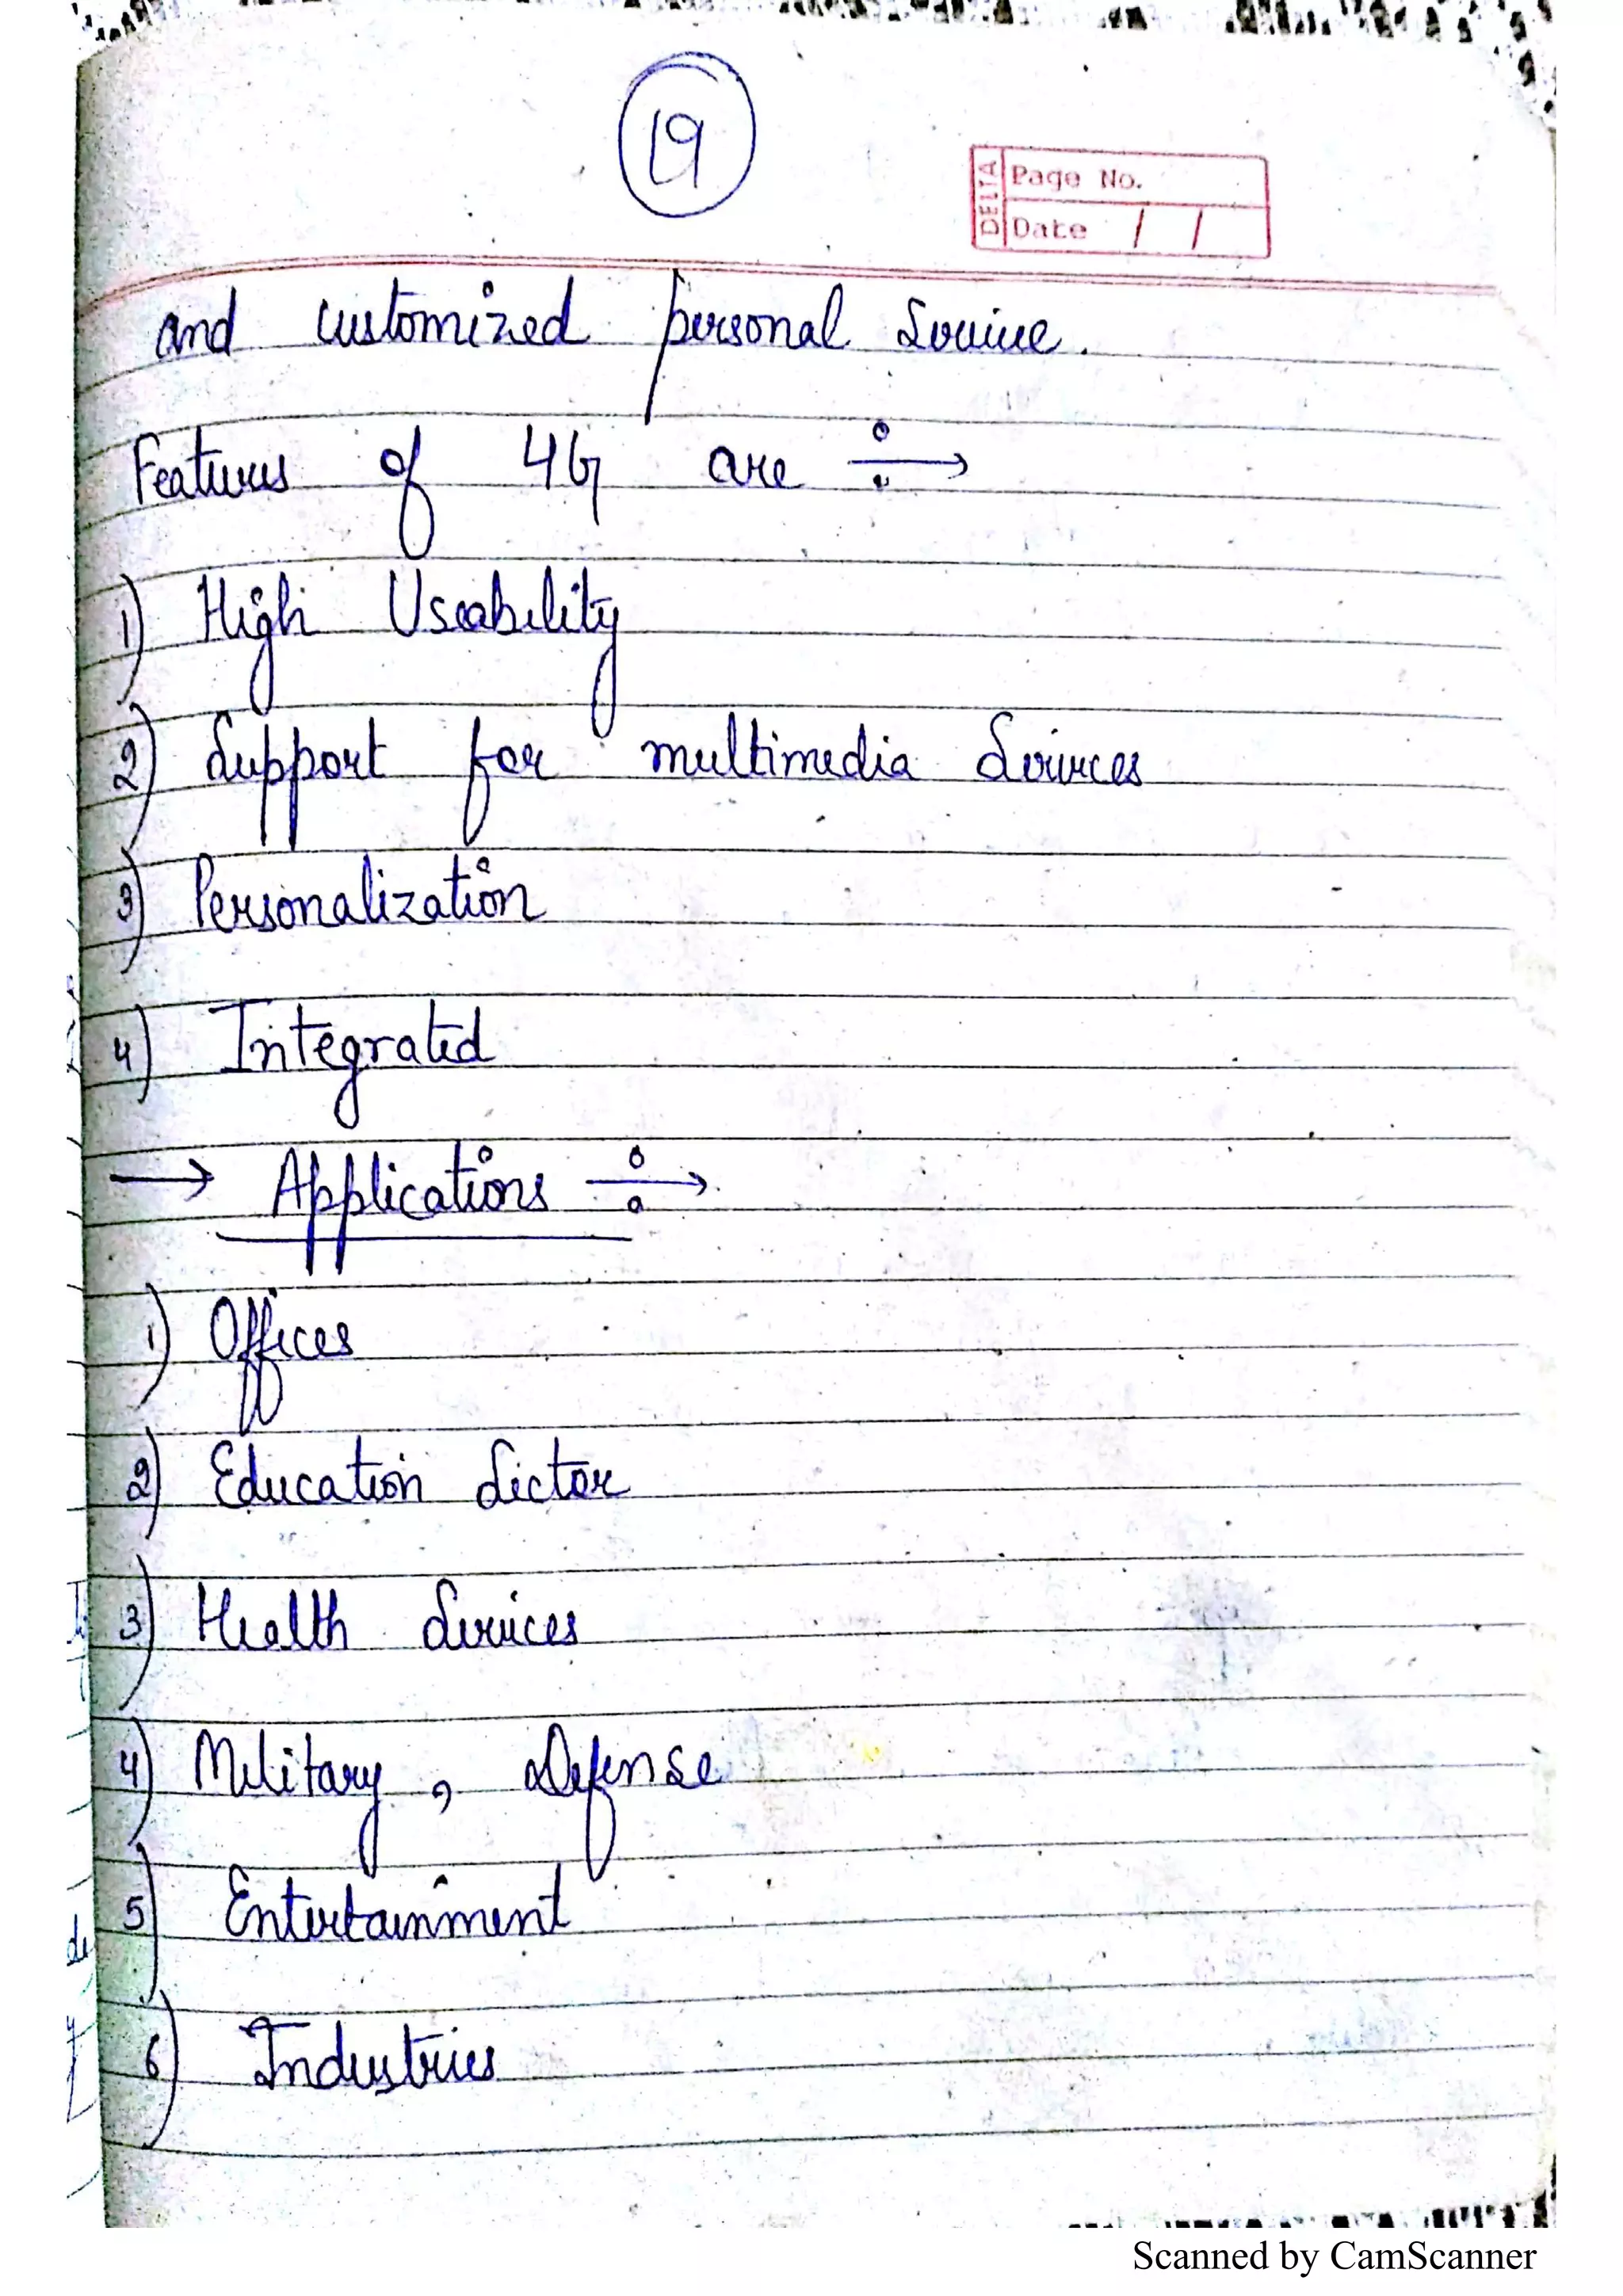 19
DELTA
Page No.
Date / /
and customized personal service.
Features of 4G are ÷→
1) High Useability
2) Support for multimedia Services
3) Personalization
4) Integrated
→ Applications ÷→
1) Offices
2) Education Sector
3) Health Services
4) Military, Defense
5) Entertainment
6) Industries
Scanned by CamScanner